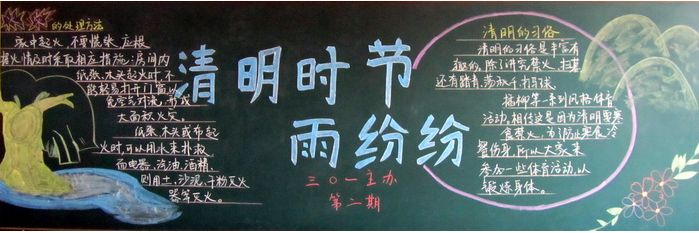 的处理方法
家中起火,不要慌张,应根
据火情及时采取相应措施:房间内
纸张,木头起火时,不
能轻易打开门窗以
免空气对流,形成
大面积火灾。
纸张,木头或布起
火时,可以用水来扑救,
而电器、汽油、酒精、
则用土、沙泥、干粉灭火
器等灭火。
清明时节
雨纷纷
三〇一主办
第二期
清明的习俗
清明的习俗是丰富有
趣的,除了讲究禁火、扫墓,
还有踏青、荡秋千、打马球、
插柳等一系列风俗体育
活动,相传这是因为清明要寒
食禁火,为了防止寒食冷
餐伤身,所以大家来
参加一些体育活动,以
锻炼身体。